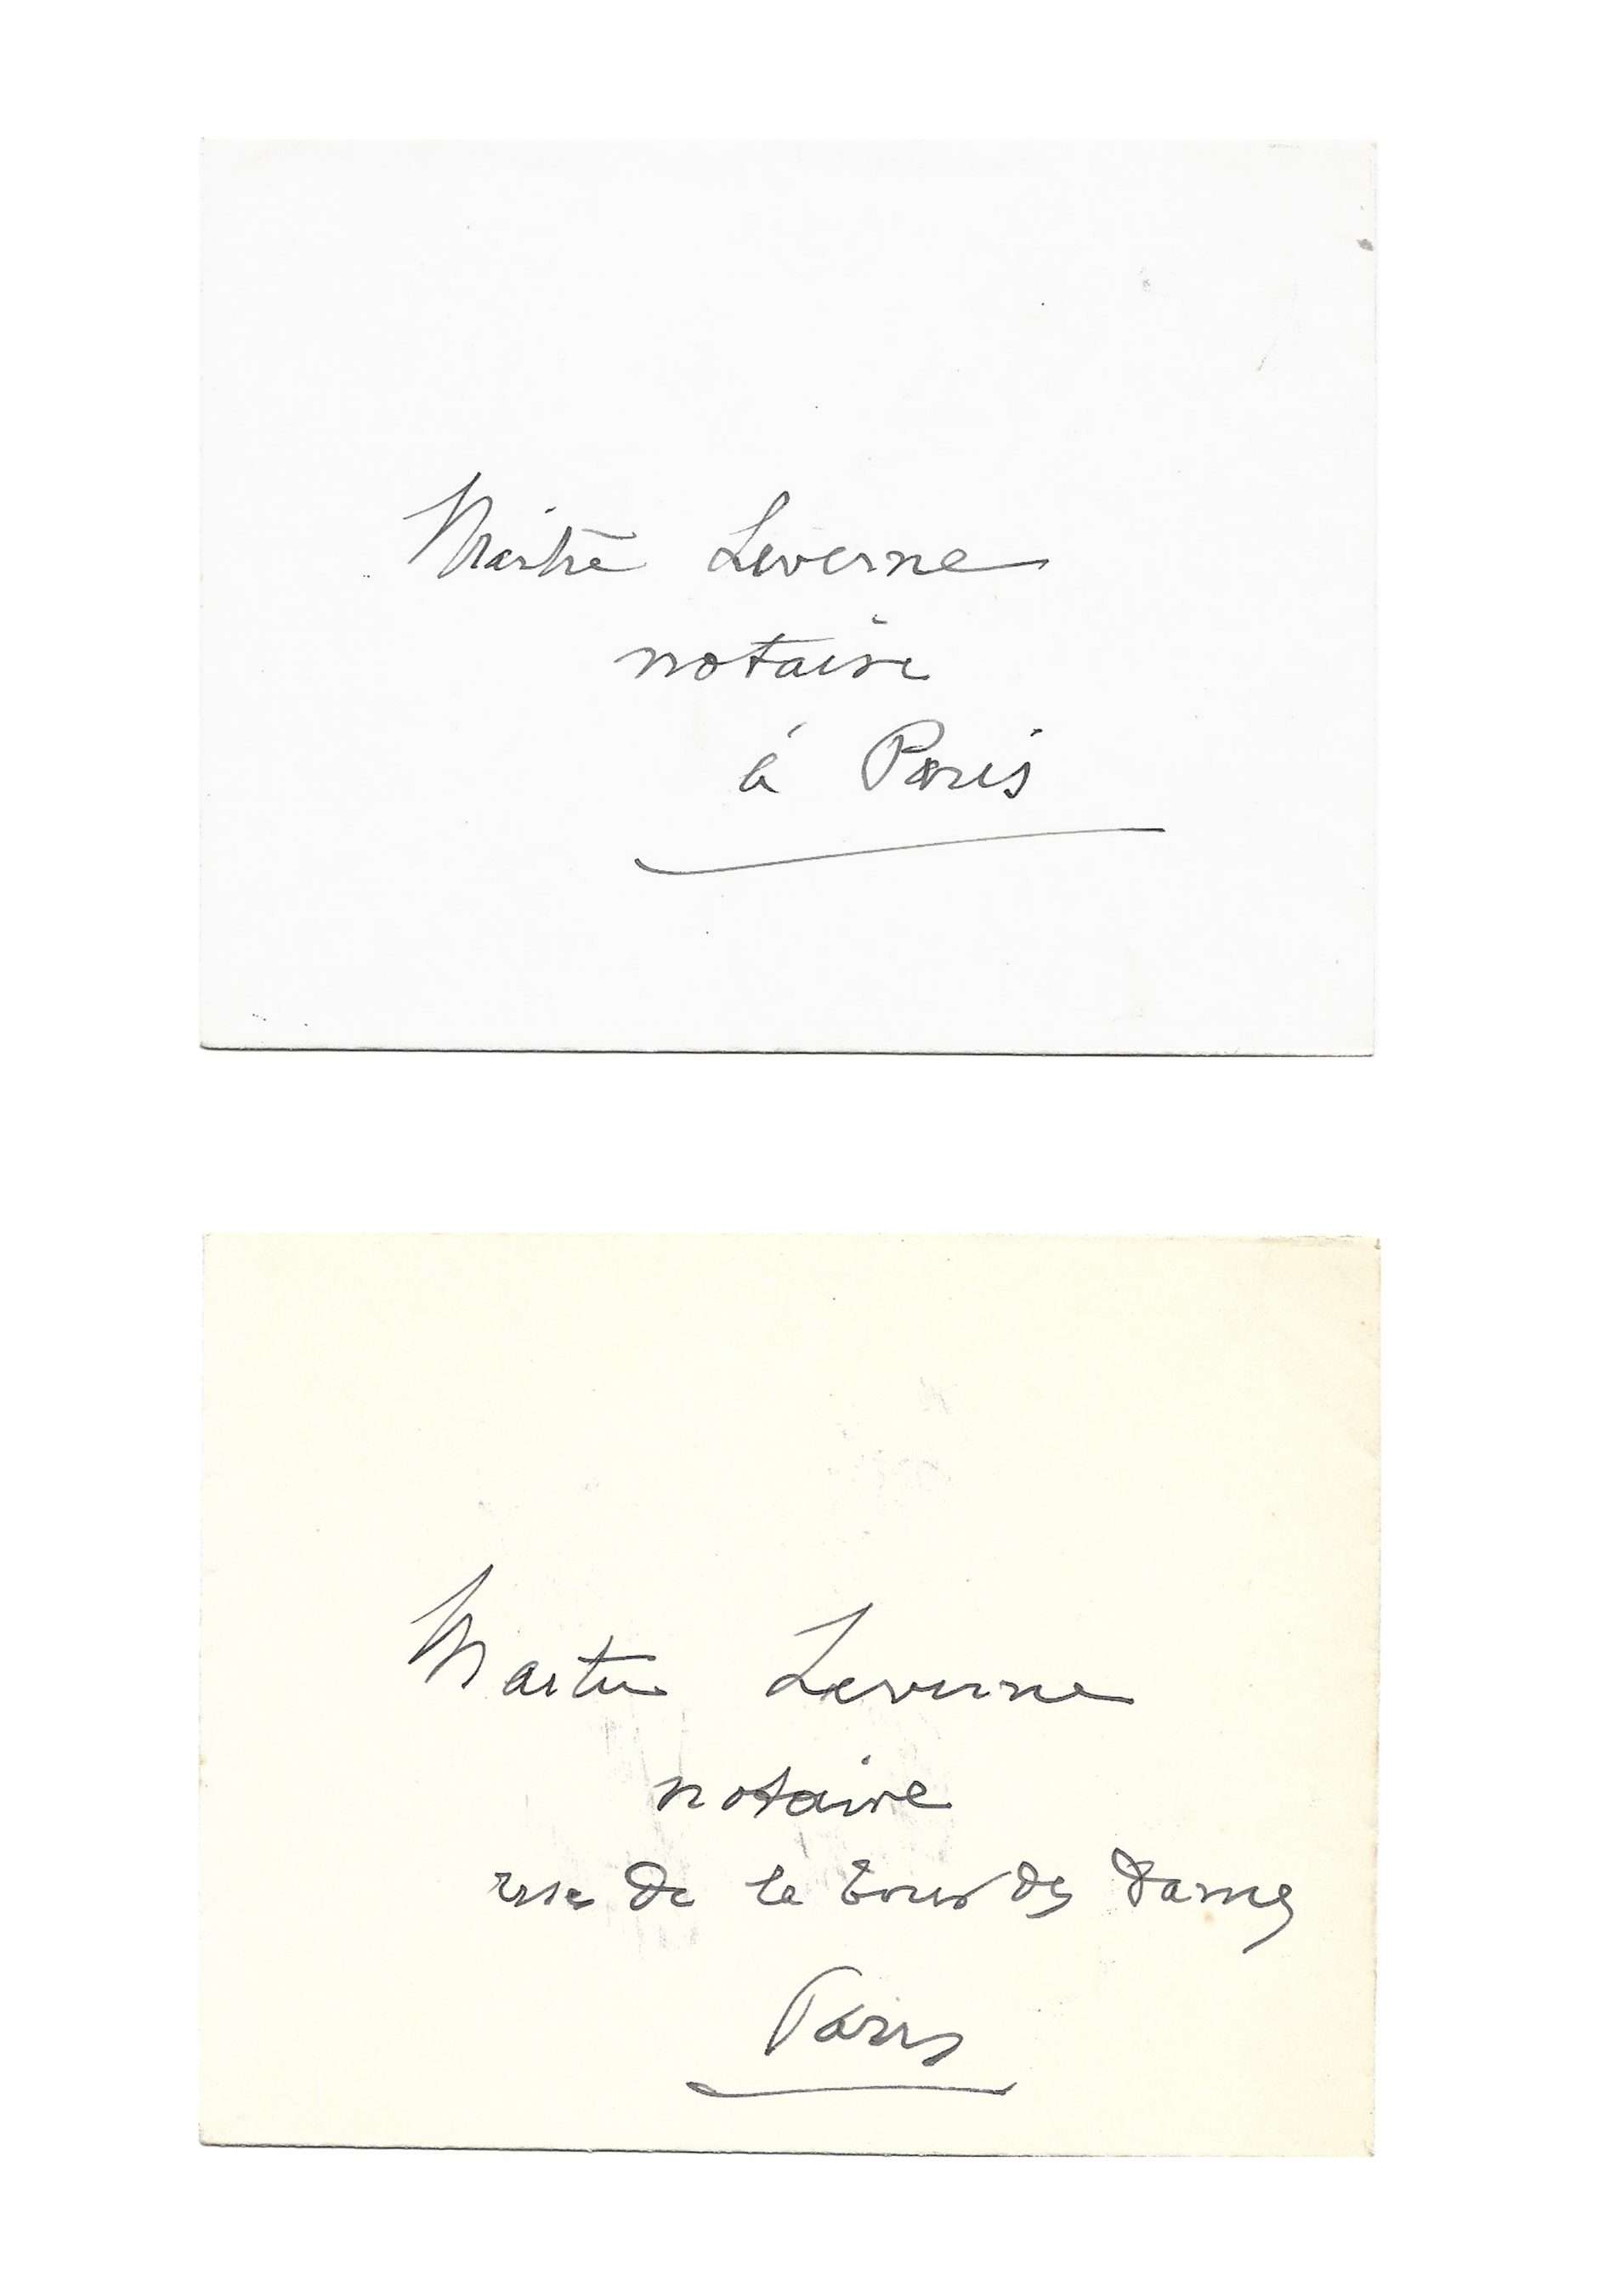 Maître Leverne
notaire
à Paris
Maître Leverne
notaire
rue de la Tour des Dames
Paris